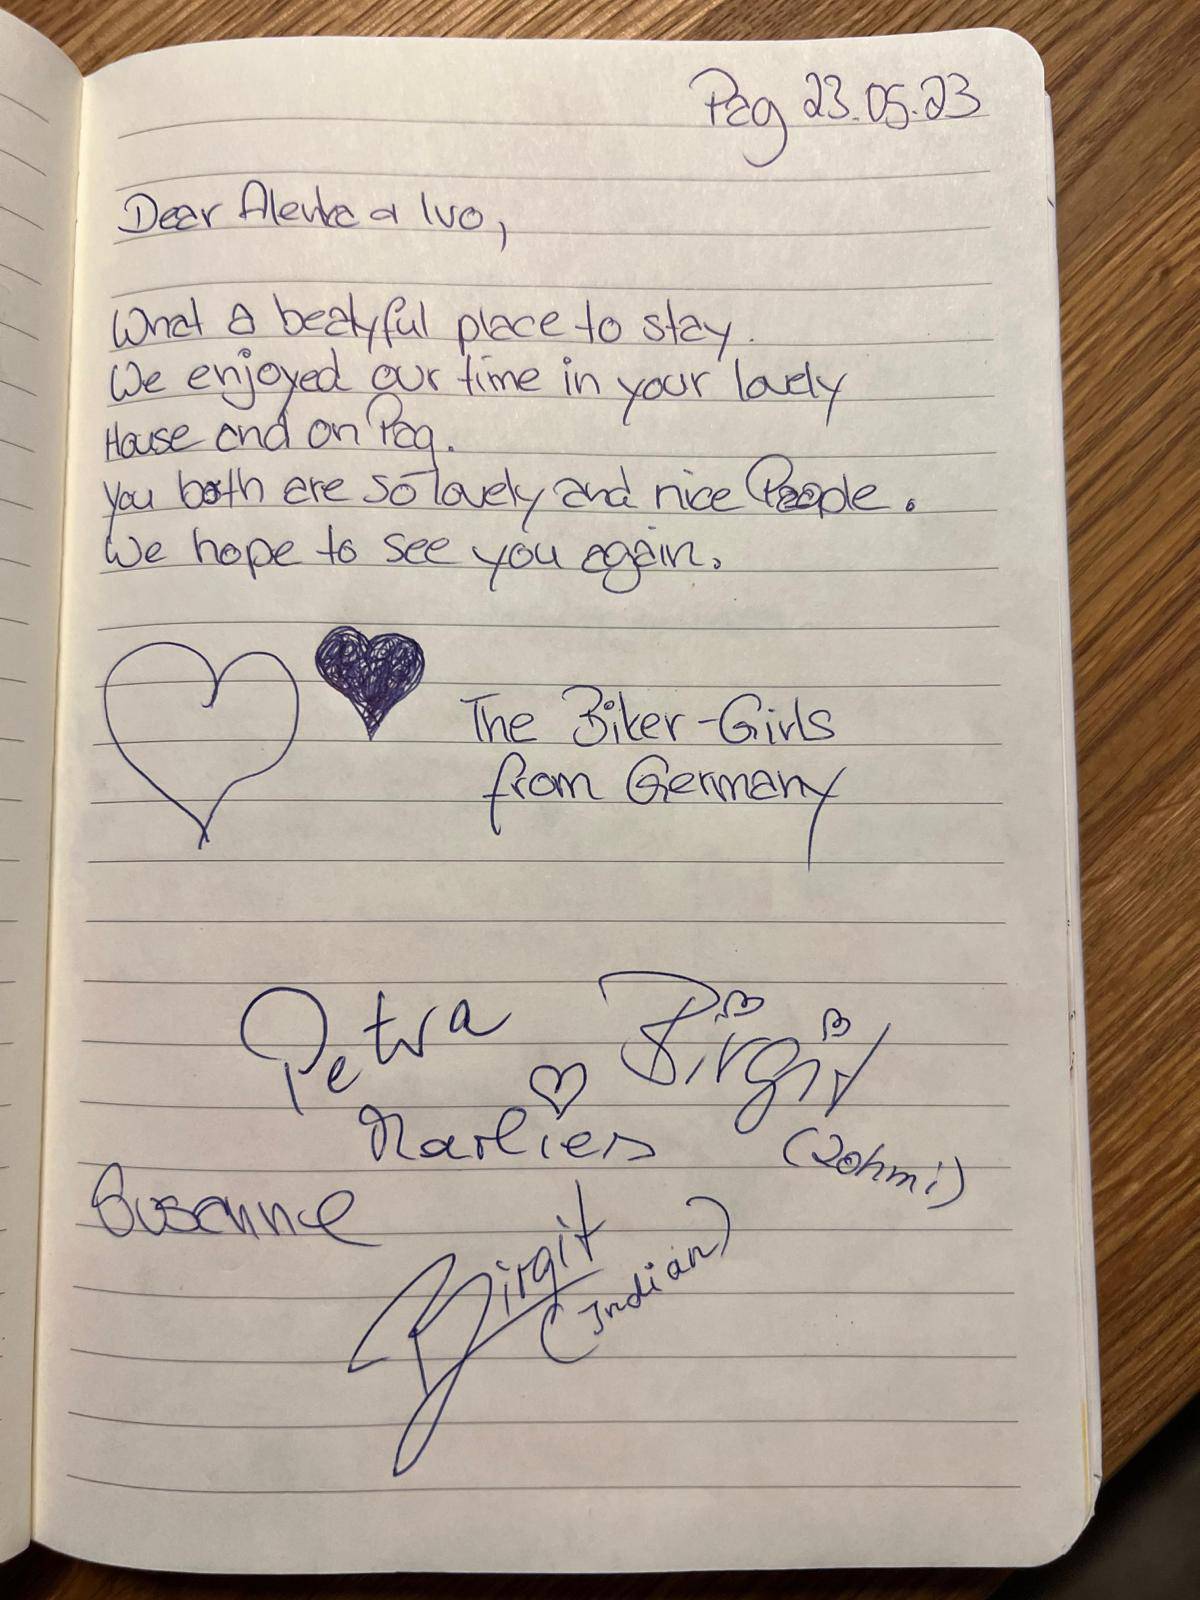 Pag 23.05.23
Dear Alenka & Ivo,
What a beatyful place to stay.
We enjoyed our time in your lovely
House and on Pag.
You both are so lovely and nice People.
We hope to see you again.
The Biker-Girls
from Germany
Petra Birgit
Marlies
Susanne
Birgit
(Indian)